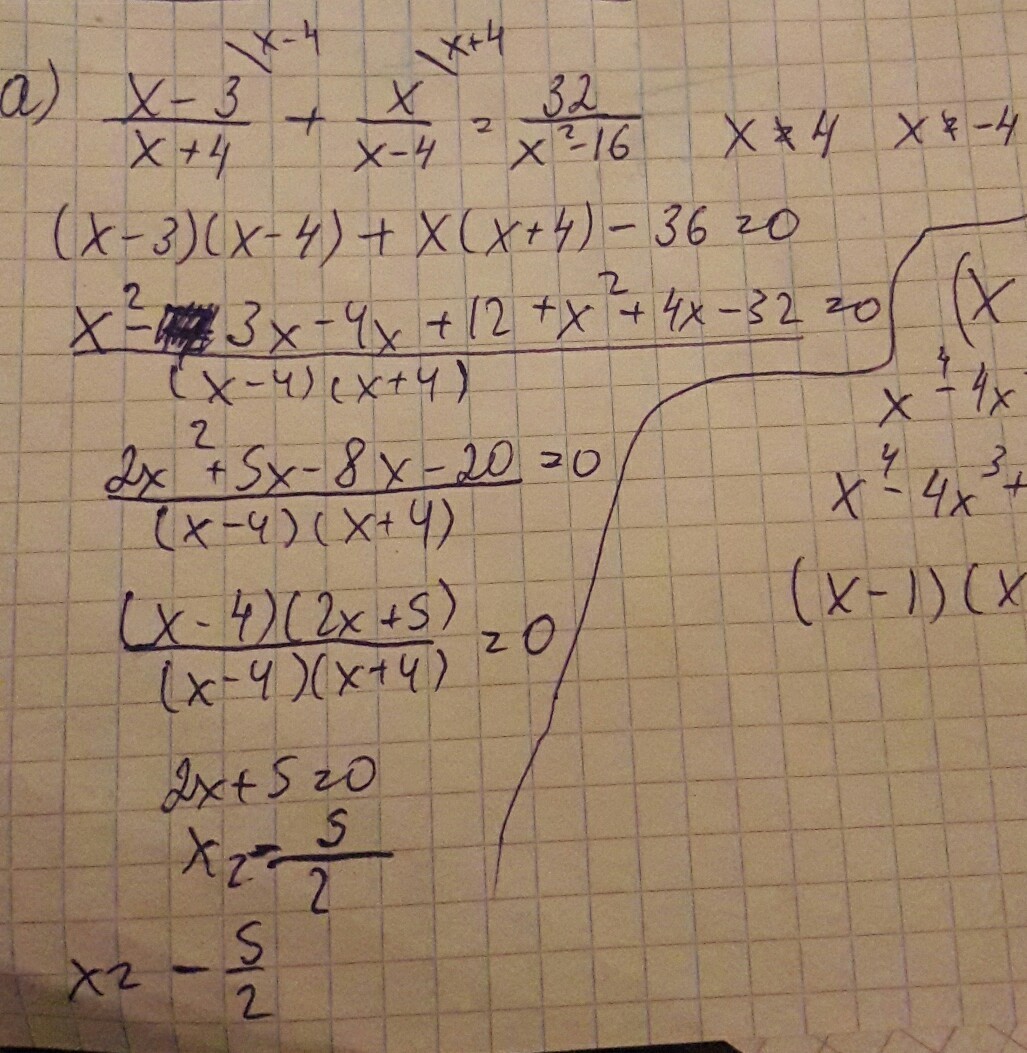 \x-4 \x+4
a) (x-3)/(x+4) + x/(x-4) = 32/(x²-16) x ≠ 4 x ≠ -4
(x-3)(x-4) + x(x+4) - 36 = 0
(x² - 3x - 4x + 12 + x² + 4x - 32)/((x-4)(x+4)) = 0
(2x² + 5x - 8x - 20)/((x-4)(x+4)) = 0
((x-4)(2x+5))/((x-4)(x+4)) = 0
2x + 5 = 0
x = -5/2
x = -5/2
(x
x⁴ - 4x
x⁴ - 4x³ +
(x-1)(x